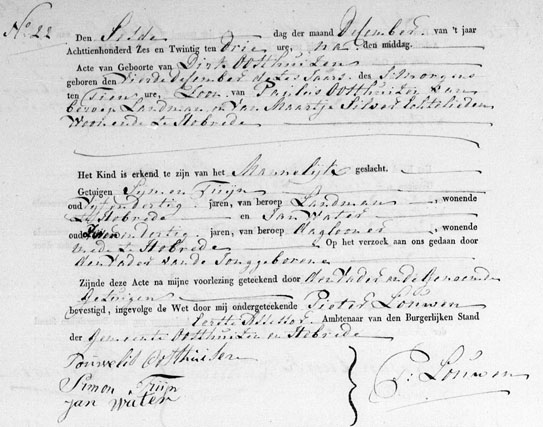 No 22
Den Sesde dag der maand Desember van 't jaar
Achttienhonderd Zes en Twintig ten drie ure, na den middag.
Acte van Geboorte van Dirk Oosthuizen
geboren den Vierde desember dezes Jaars des S'morgens
ten Tien ure, Zoon van Paulus Oosthuizen van
beroep Landman en van Maartje Silver Echtelieden
Woonende te Hobrede
Het Kind is erkend te zijn van het Mannelijk geslacht.
Getuigen Symen Tuijn
oud vijfendertig jaren, van beroep Landman wonende
te Hobrede en Jan Water
oud endertig jaren, van beroep daglooner wonende
mede te Hobrede Op het verzoek aan ons gedaan door
den Vader van de Jonggeborene
Zijnde deze Acte na mijne voorlezing geteekend door den Vader en de Genoemde
Getuigen
bevestigd, ingevolge de Wet door mij ondergeteekende Pieter Louwen
Eerste Assessor Ambtenaar van den Burgerlijken Stand
der Gemeente Oosthuizen en Hobrede
Pouwelis Oosthuisen
Simon Tuijn
Jan Water
P: Louwen